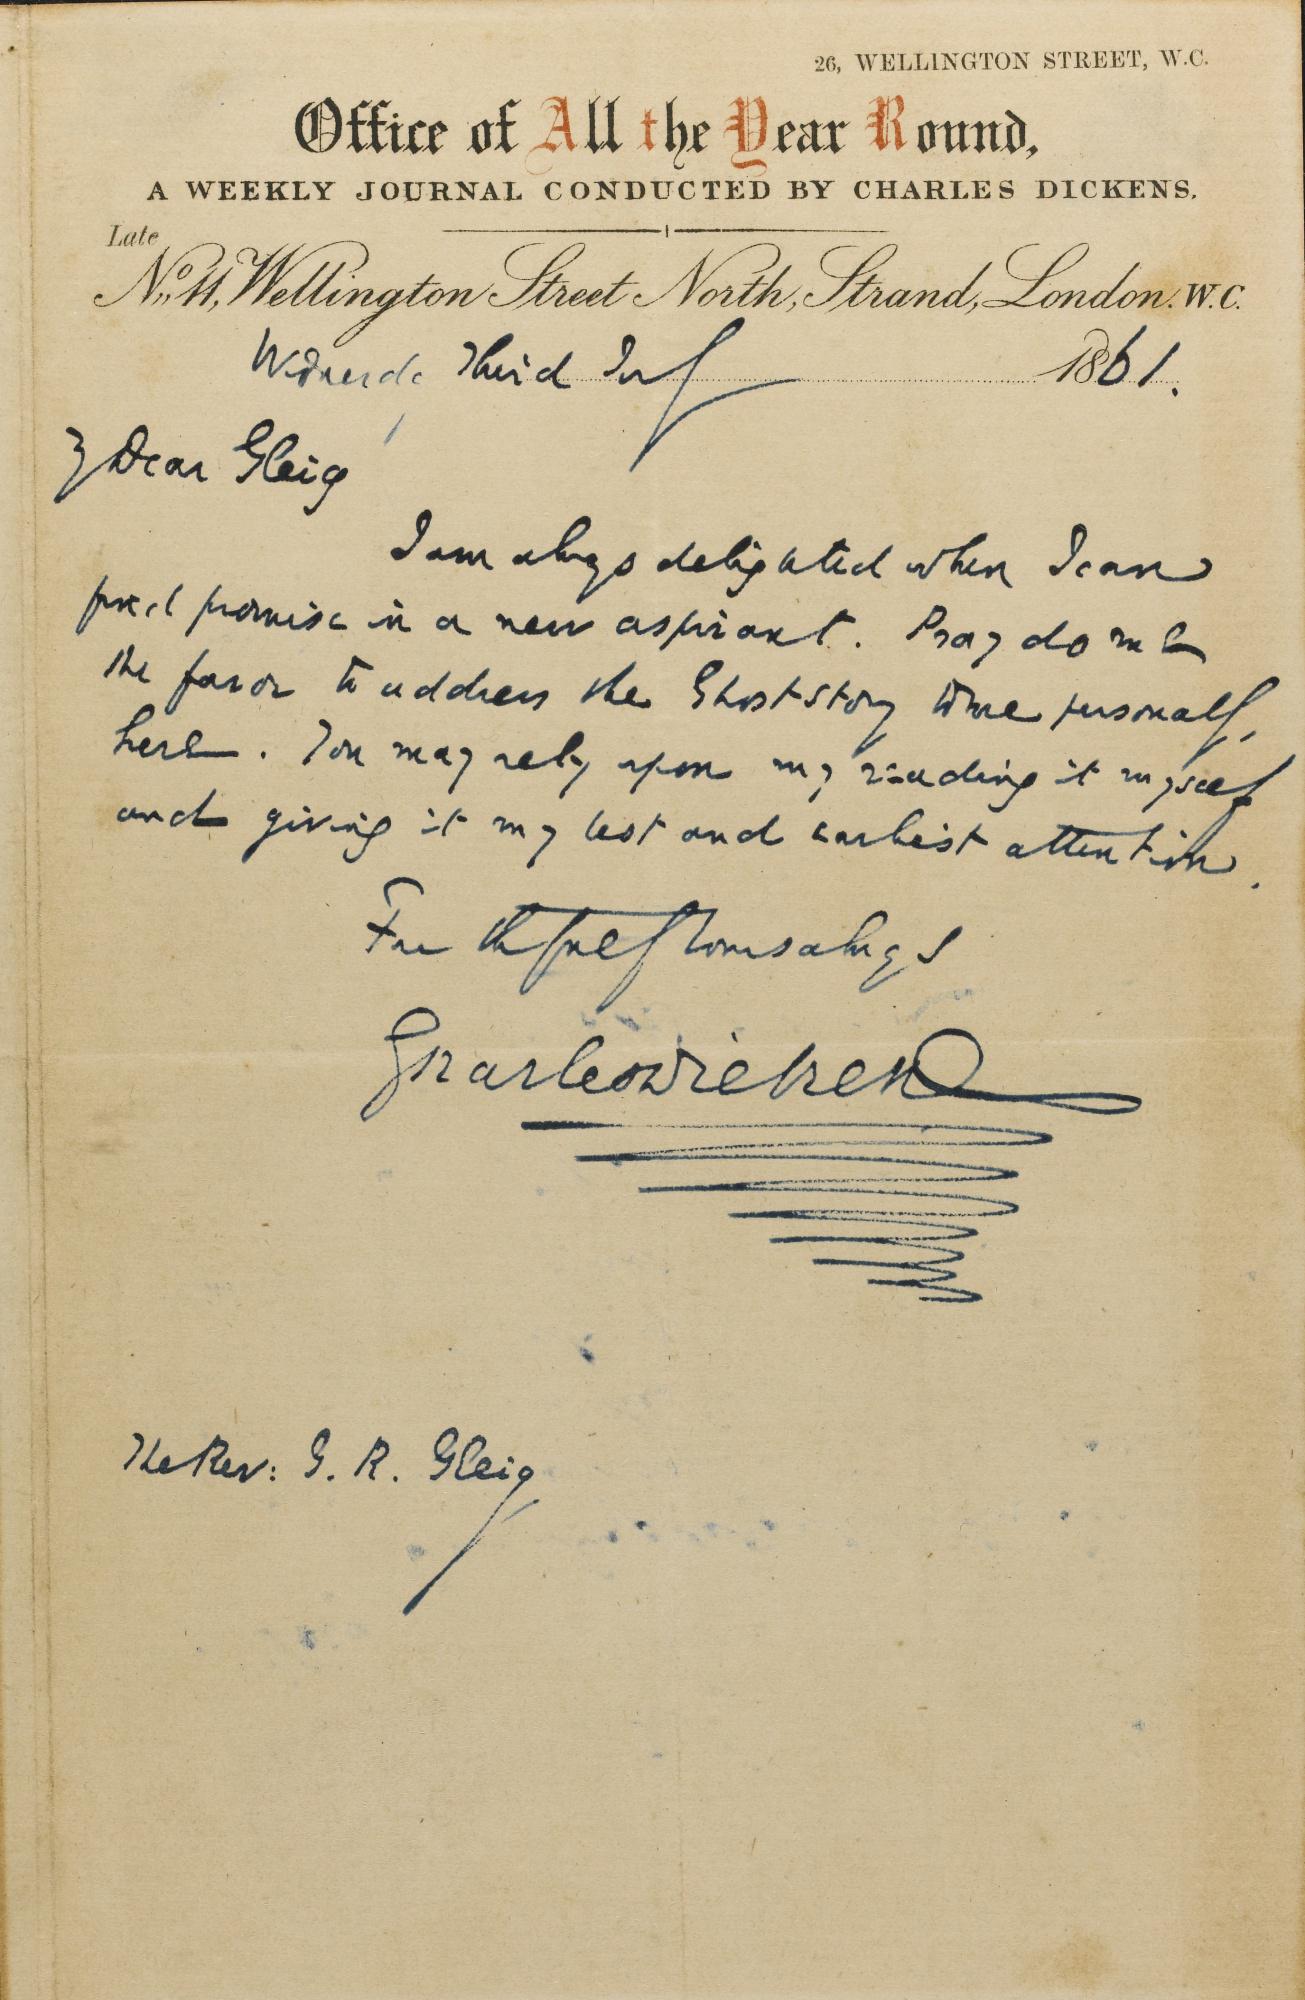 26, WELLINGTON STREET, W.C.
Office of All the Year Round,
A WEEKLY JOURNAL CONDUCTED BY CHARLES DICKENS.
Late
No. 11, Wellington Street North, Strand, London. W.C.
Wednesday Third July 1861.
My Dear Gleig
I am always delighted when I can
find promise in a new aspirant. Pray do me
the favor to address the Ghost Story to me personally,
here. You may rely upon my reading it myself
and giving it my best and earliest attention.
Faithfully Yours always
Charles Dickens
The Rev: G. R. Gleig